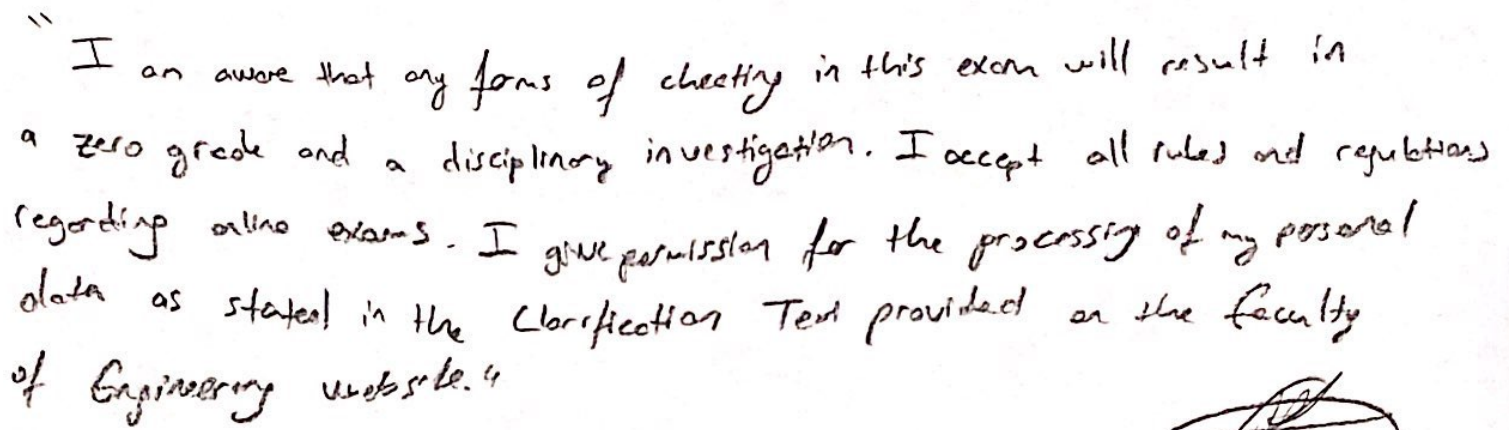 "I am aware that any forms of cheating in this exam will result in
a zero grade and a disciplinary investigation. I accept all rules and regulations
regarding online exams. I give permission for the processing of my personal
data as stated in the Clarification Text provided on the faculty
of Engineering website."